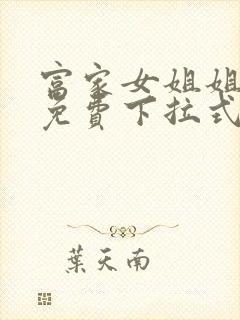 富家女姐姐
免費下拉式
葉天南